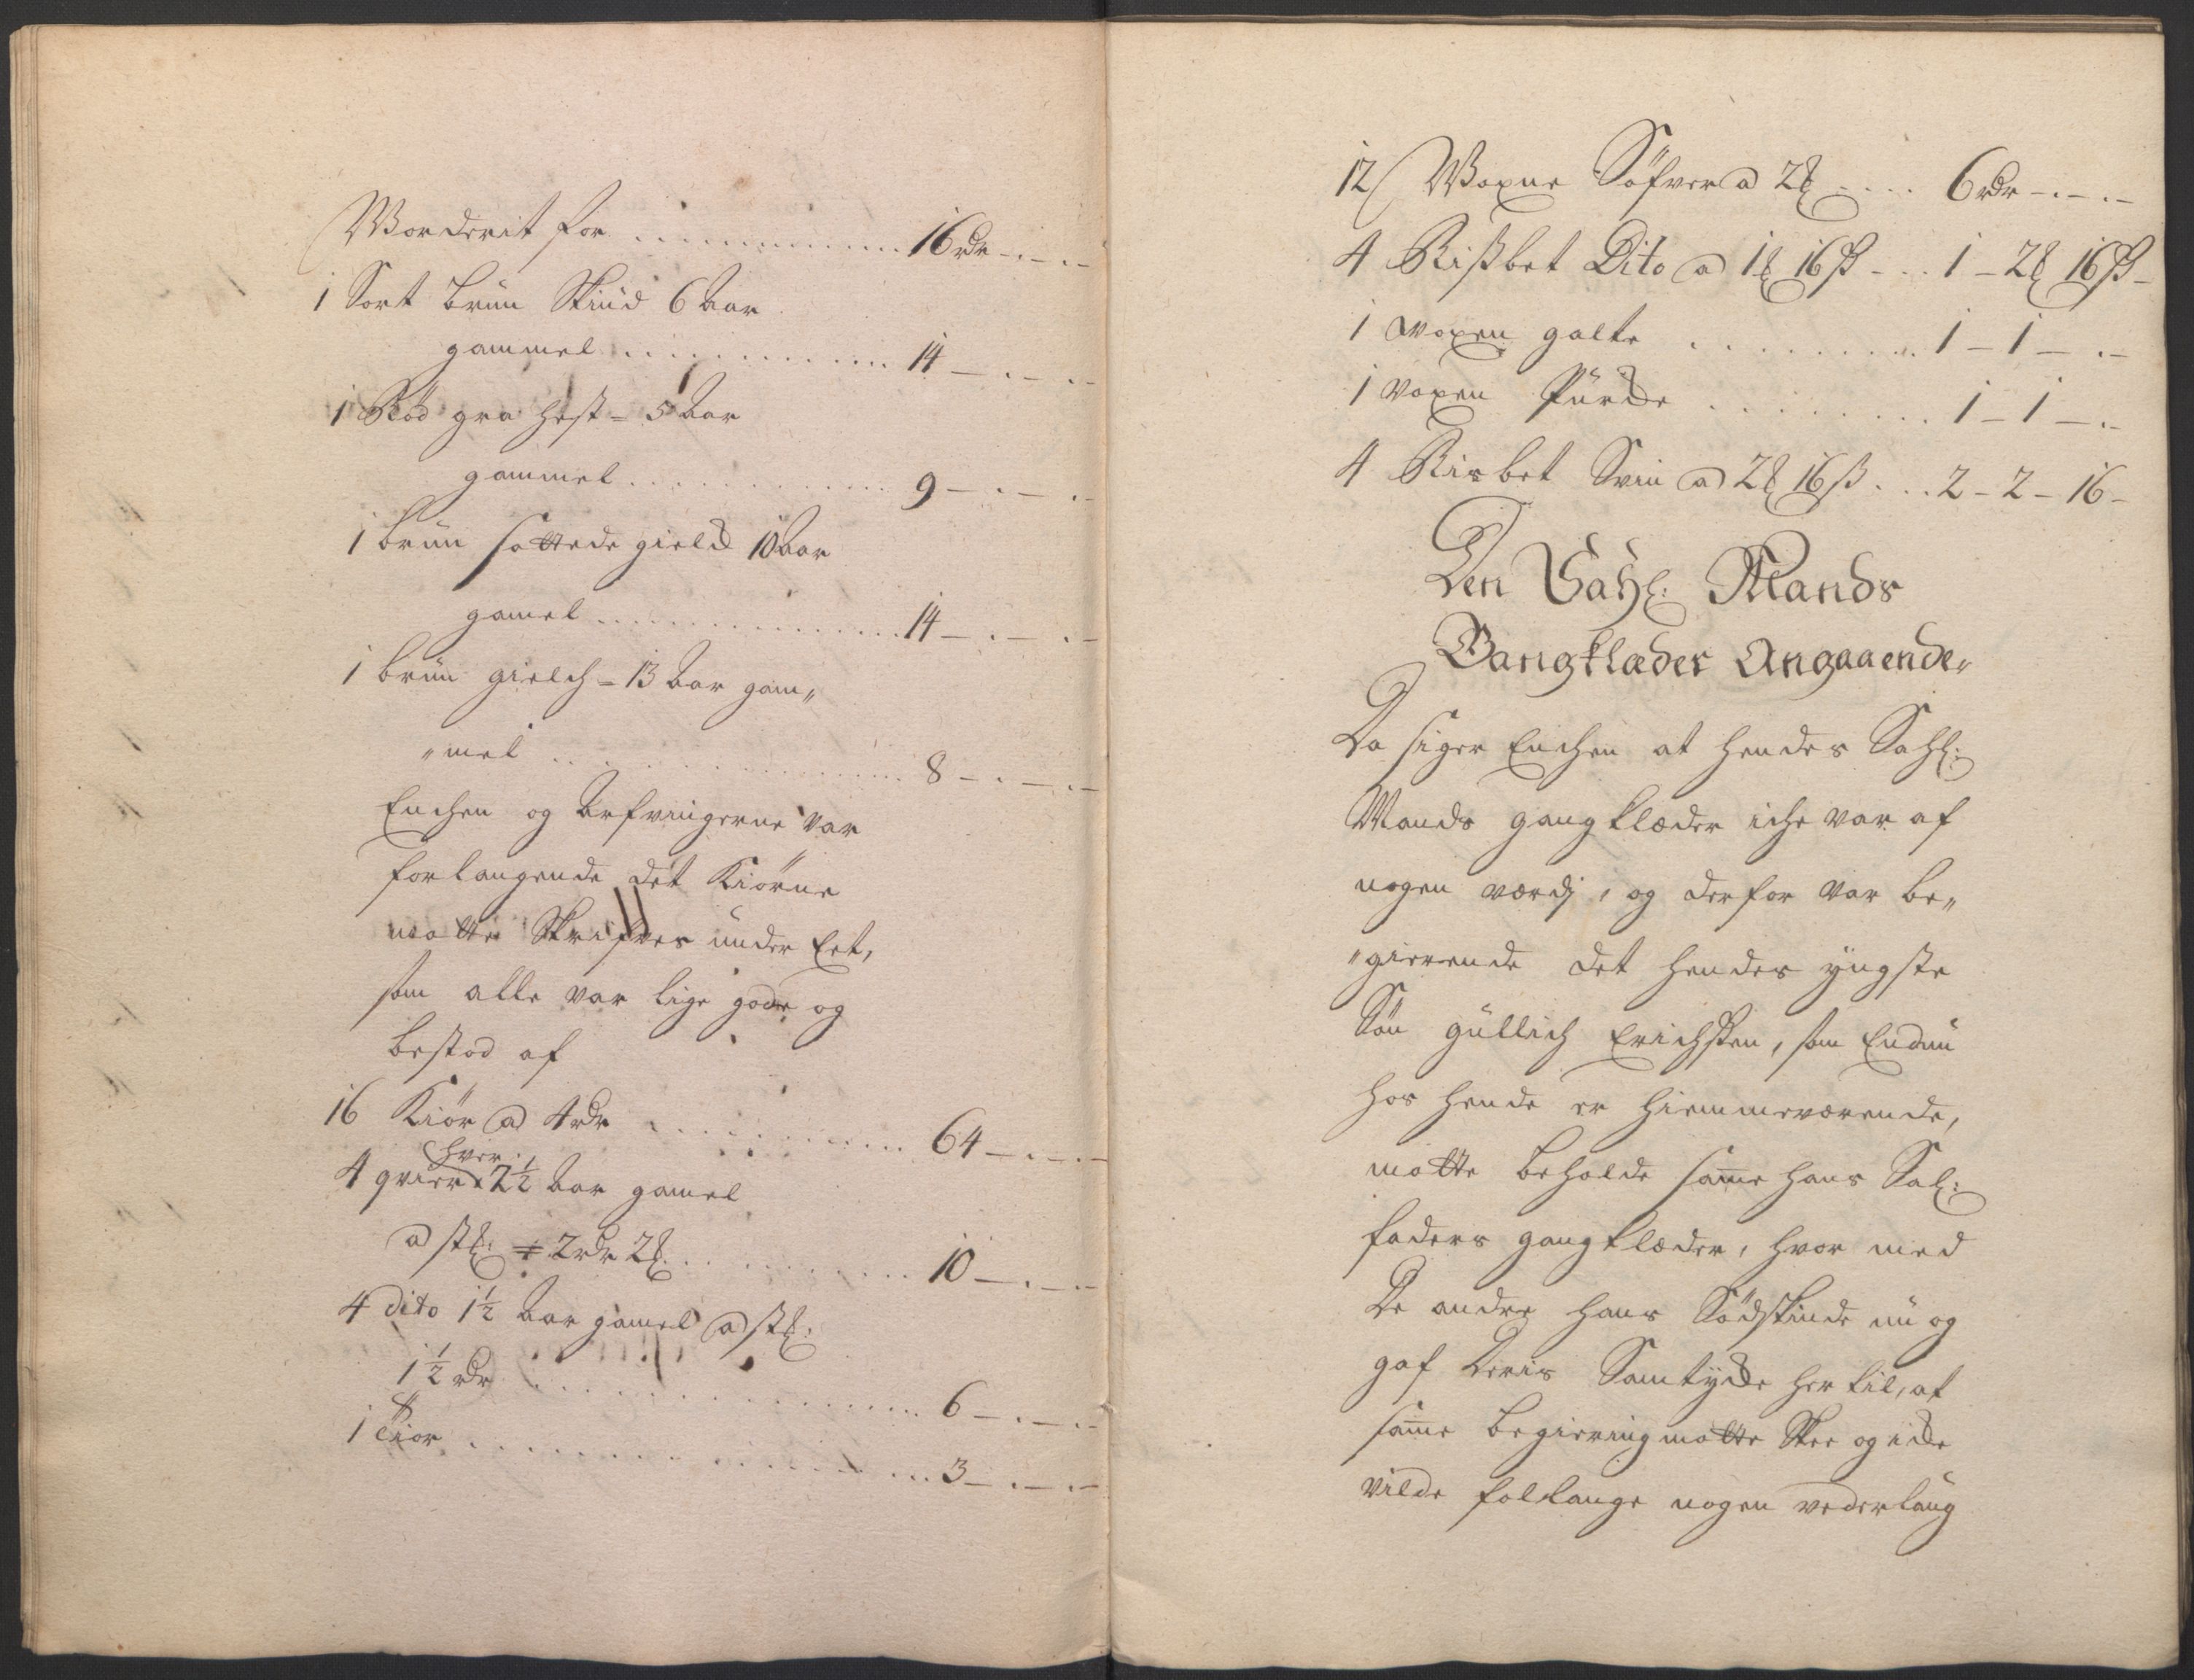 Worderit for ........... 16 rdr - . - . -
1 Sort brun Skiud 6 Aar
gammel ........... 14 - . - . -
1 Rød graa hest = 5 Aar
gammel ........... 9 - . - . -
1 brun sottede gield 10 Aar
gamel ........... 14 - . - . -
1 brun gielch = 13 Aar gam„
„mel ........... 8 - . - . -
Enchen og Arfvingerne var
forlangende det Kiørne
motte Skrifves under Eet,
som alle var lige gode og
bestod af
16 Kiør a 4 rdr ........... 64 - . - . -
hver
4 qvier 2½ Aar gamel
a stk: = 2 rdr 2 ₰ ........... 10 - . - . -
4 dito 1½ Aar gamel a stk:
1½ rdr ........... 6 - . - . -
1 tior ........... 3 - . - . -
12 Woxne Søfver a 2 ₰ .... 6 rdr - . - . -
4 Rißbet Dito a 1 ₰ 16 ß - .. 1 - 2 ₰ 16 ß -
1 voxen galte ........ 1 - 1 - . -
1 voxen Purcke ........ 1 - 1 - . -
4 Risbet Svin a 2 ₰ 16 ß ... 2 - 2 - 16 -
Den Sahl: Mands
Gangklæder Angaaende„
Da siger Enchen at hendes Sahl:
Mands gangklæder iche var af
nogen værdj, og derfor var be„
„gierende det hendes yngste
Søn gullich Erichsen, som Endnu
hos hende er hiemmeværende,
motte beholde samme hans Sal:
faders gangklæder, hvor med
De andre hans Sødskinde nu og
gaf Deris Samtycke her til, at
samme begiering motte Skee og icke
vilde follange nogen vederlaug